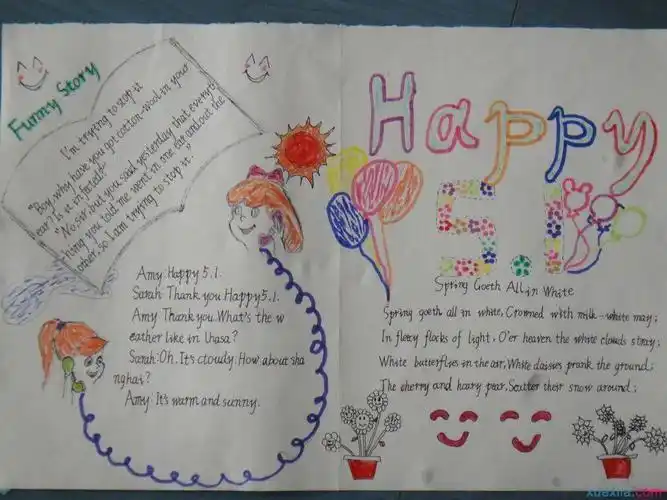 Funny Story
I'm trying to stop it
"Boy, why have you got cotton-wool in your
ear? Is it infected?"
"No, sir, but you said yesterday that everyt
hing you told me went in one ear and out the
other, so I am trying to stop it."
Amy: Happy 5.1.
Sarah: Thank you. Happy 5.1.
Amy: Thank you. What's the w
eather like in lhasa?
Sarah: Oh. It's cloudy. How about sha
nghai?
Amy: It's warm and sunny.
Happy
5.1
Spring Goeth All in White
Spring goeth all in white, Crowned with milk-white may;
In fleecy flocks of light, O'er heaven the white clouds stray;
White butterflies in the air, White daisies prank the ground;
The cherry and hoary pear, Scatter their snow around;
xuexila.com